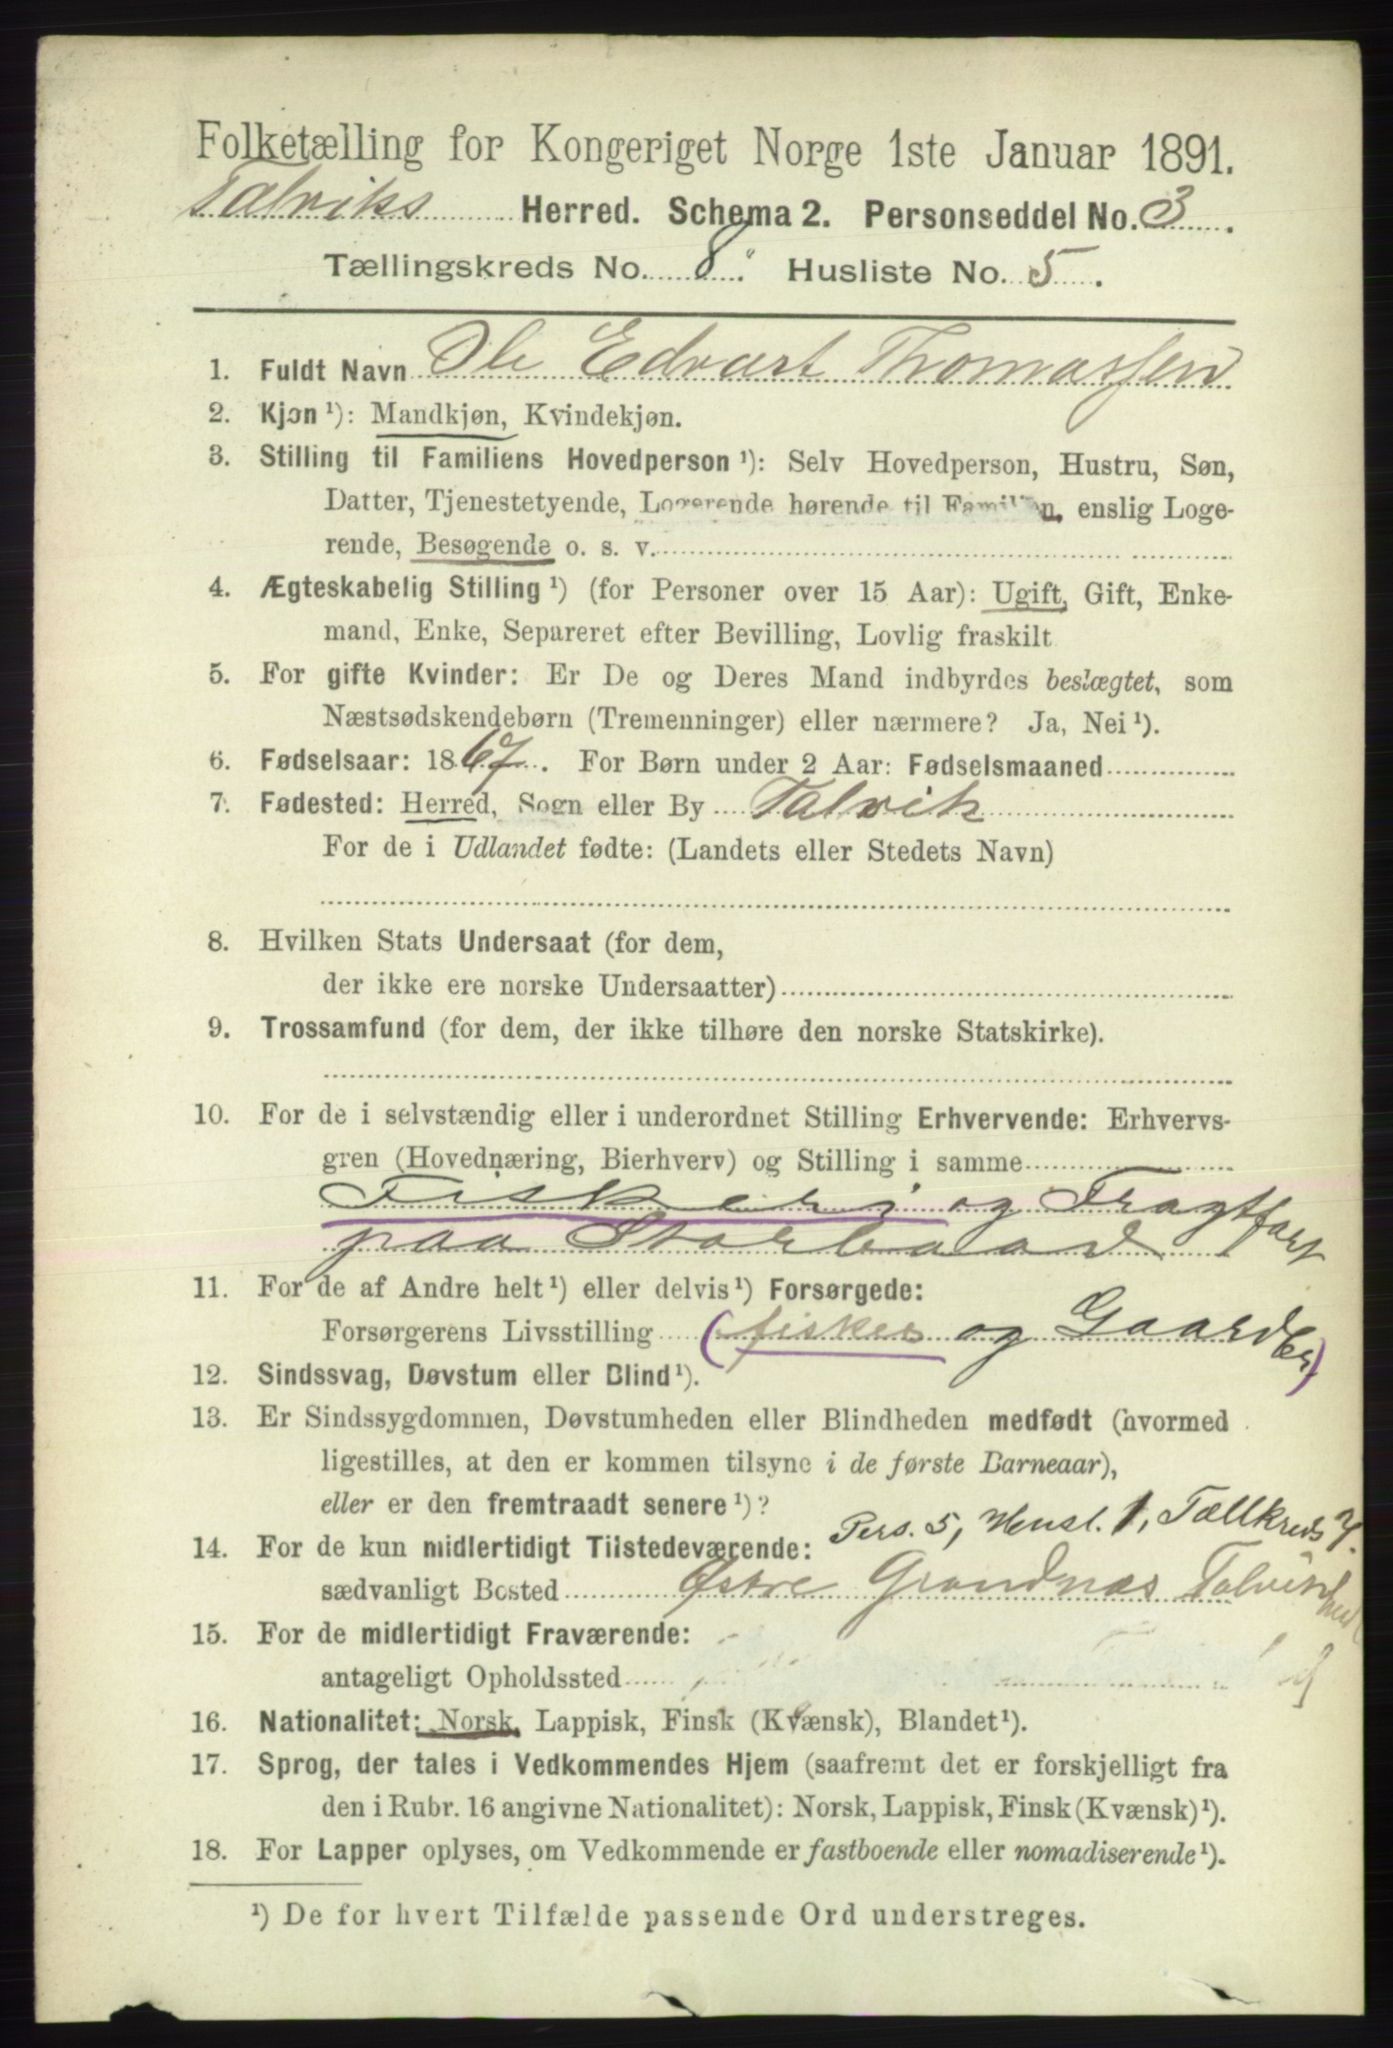 Folketælling for Kongeriget Norge 1ste Januar 1891.
Talviks Herred. Schema 2. Personseddel No. 3.
Tællingskreds No. 8. Husliste No. 5.
1. Fuldt Navn Ole Edvart Thomassen
2. Kjøn ¹): Mandkjøn, Kvindekjøn.
3. Stilling til Familiens Hovedperson ¹): Selv Hovedperson, Hustru, Søn,
Datter, Tjenestetyende, Logerende hørende til Familien, enslig Loge-
rende, Besøgende o. s. v.
4. Ægteskabelig Stilling ¹) (for Personer over 15 Aar): Ugift, Gift, Enke-
mand, Enke, Separeret efter Bevilling, Lovlig fraskilt
5. For gifte Kvinder: Er De og Deres Mand indbyrdes beslægtet, som
Næstsødskendebørn (Tremenninger) eller nærmere? Ja, Nei ¹).
6. Fødselsaar: 1867. For Børn under 2 Aar: Fødselsmaaned
7. Fødested: Herred, Sogn eller By Talvik
For de i Udlandet fødte: (Landets eller Stedets Navn)
8. Hvilken Stats Undersaat (for dem,
der ikke ere norske Undersaatter)
9. Trossamfund (for dem, der ikke tilhøre den norske Statskirke).
10. For de i selvstændig eller i underordnet Stilling Erhvervende: Erhvervs-
gren (Hovednæring, Bierhverv) og Stilling i samme
Fiskeri og Fragtfart
paa Storbaad
11. For de af Andre helt ¹) eller delvis ¹) Forsørgede:
Forsørgerens Livsstilling (fisker og Gaardbr)
12. Sindssvag, Døvstum eller Blind ¹).
13. Er Sindssygdommen, Døvstumheden eller Blindheden medfødt (hvormed
ligestilles, at den er kommen tilsyne i de første Barneaar),
eller er den fremtraadt senere ¹)?
Pers. 5, Husl. 1, Tællkreds 7.
14. For de kun midlertidigt Tilstedeværende:
sædvanligt Bosted Østre Grandnæs Talvik
15. For de midlertidigt Fraværende:
antageligt Opholdssted
16. Nationalitet: Norsk, Lappisk, Finsk (Kvænsk), Blandet ¹).
17. Sprog, der tales i Vedkommendes Hjem (saafremt det er forskjelligt fra
den i Rubr. 16 angivne Nationalitet): Norsk, Lappisk, Finsk (Kvænsk) ¹).
18. For Lapper oplyses, om Vedkommende er fastboende eller nomadiserende ¹).
¹) De for hvert Tilfælde passende Ord understreges.